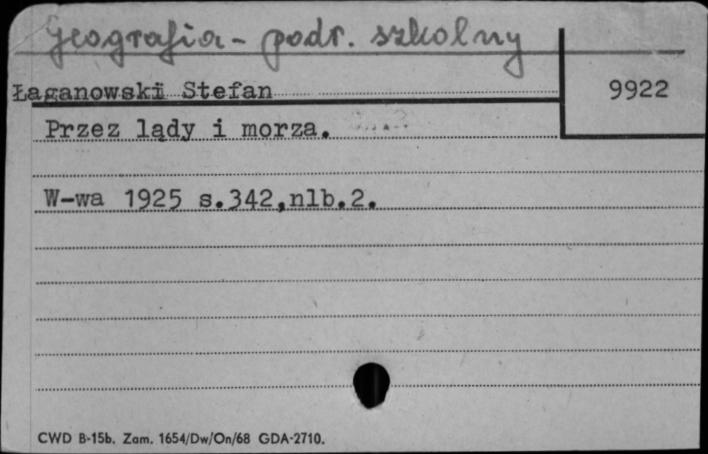 Geografia - podr. szkolny
Łaganowski Stefan
9922
Przez lądy i morza.
W-wa 1925 s.342,nlb.2.
CWD B-15b. Zam. 1654/Dw/On/68 GDA-2710.